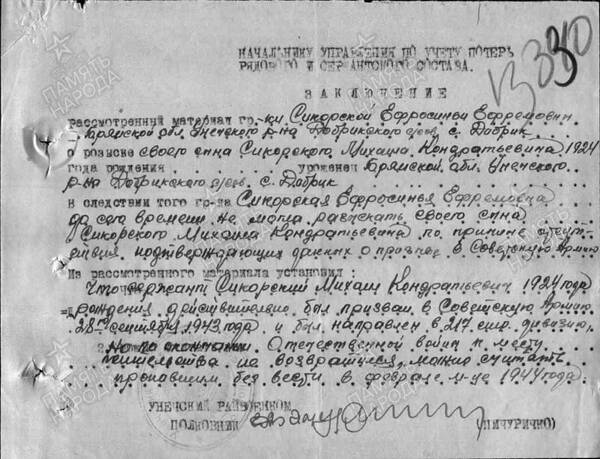 НАЧАЛЬНИКУ УПРАВЛЕНИЯ ПО УЧЕТУ ПОТЕРЬ
РЯДОВОГО И СЕРЖАНТСКОГО СОСТАВА.
ЗАКЛЮЧЕНИЕ
рассмотренный материал гр-ки Сикорской Ефросиньи Ефремовны
Брянской обл. Унечского р-на Добрикского с/сов. с. Добрик
о розыске своего сына Сикорского Михаила Кондратьевича 1924
года рождения уроженец Брянской обл. Унечского
р-на Добрикского с/сов. с. Добрик
В следствии того гр-ка Сикорская Ефросинья Ефремовна
до сего времени не могла разыскать своего сына
Сикорского Михаила Кондратьевича по причине отсут-
ствия подтверждающих данных о призыве в Советскую Армию
Из рассмотренного материала установил :
Что сержант Сикорский Михаил Кондратьевич 1924 года
рождения действительно был призван в Советскую Армию
28 сентября 1943 года и был направлен в 217 стр. дивизию,
Но по окончании Отечественной войны к месту
жительства не возвратился, можно считать
пропавшим без вести в феврале м-це 1944 года.
УНЕЧСКИЙ РАЙВОЕНКОМ
ПОЛКОВНИК
(ПИЧУРИЧКО)
ПАМЯТЬ
НАРОДА